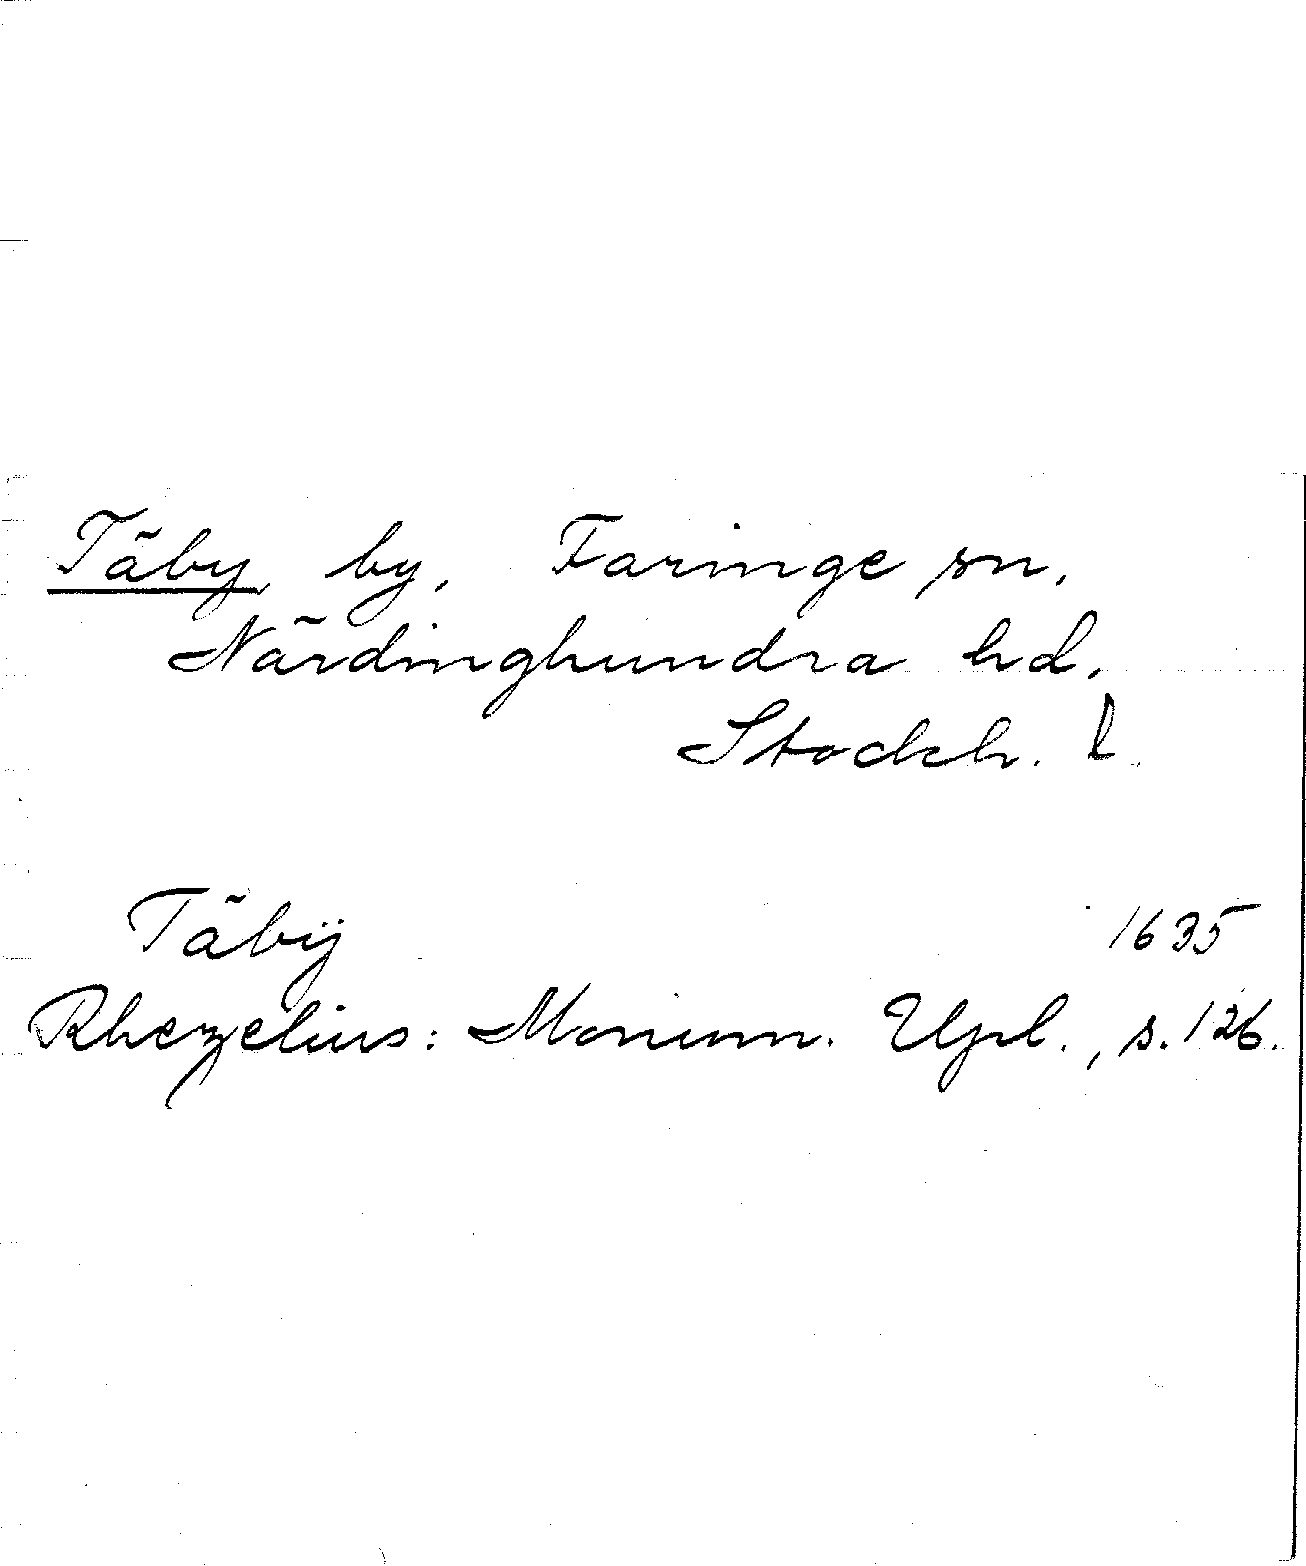 Täby, by, Faringe sn,
Närdinghundra hd,
Stockh. l.
Täbÿ 1635
Rhezelius: Monum. Upl., s. 126.